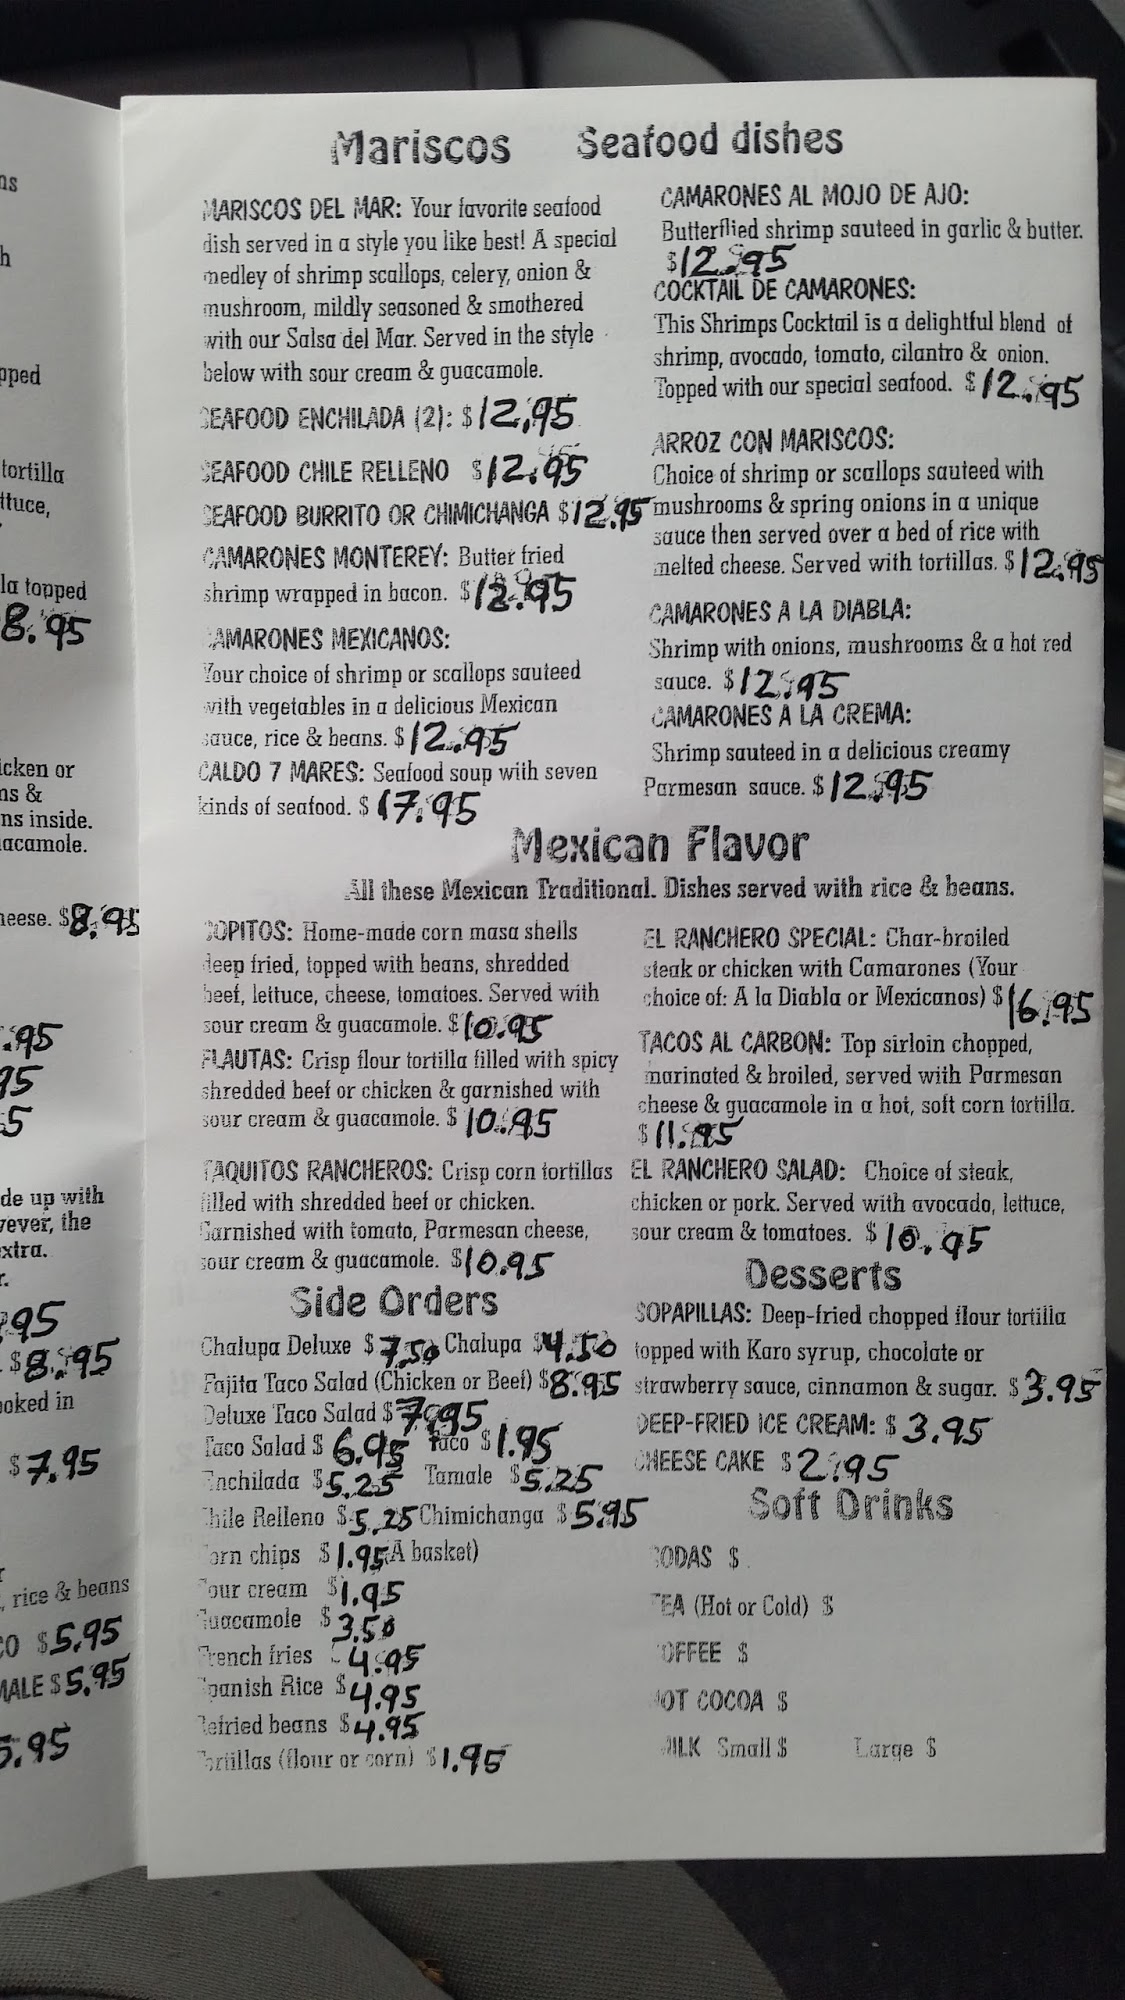 Mariscos Seafood dishes
MARISCOS DEL MAR: Your favorite seafood
dish served in a style you like best! A special
medley of shrimp scallops, celery, onion &
mushroom, mildly seasoned & smothered
with our Salsa del Mar. Served in the style
below with sour cream & guacamole.
SEAFOOD ENCHILADA (2): $12.95
SEAFOOD CHILE RELLENO $12.95
SEAFOOD BURRITO OR CHIMICHANGA $12.95
CAMARONES MONTEREY: Butter fried
shrimp wrapped in bacon. $12.95
CAMARONES MEXICANOS:
Your choice of shrimp or scallops sauteed
with vegetables in a delicious Mexican
sauce, rice & beans. $12.95
CALDO 7 MARES: Seafood soup with seven
kinds of seafood. $17.95
CAMARONES AL MOJO DE AJO:
Butterflied shrimp sauteed in garlic & butter.
$12.95
COCKTAIL DE CAMARONES:
This Shrimps Cocktail is a delightful blend of
shrimp, avocado, tomato, cilantro & onion.
Topped with our special seafood. $12.95
ARROZ CON MARISCOS:
Choice of shrimp or scallops sauteed with
mushrooms & spring onions in a unique
sauce then served over a bed of rice with
melted cheese. Served with tortillas. $12.95
CAMARONES A LA DIABLA:
Shrimp with onions, mushrooms & a hot red
sauce. $12.95
CAMARONES A LA CREMA:
Shrimp sauteed in a delicious creamy
Parmesan sauce. $12.95
Mexican Flavor
All these Mexican Traditional. Dishes served with rice & beans.
SOPITOS: Home-made corn masa shells
deep fried, topped with beans, shredded
beef, lettuce, cheese, tomatoes. Served with
sour cream & guacamole. $10.95
FLAUTAS: Crisp flour tortilla filled with spicy
shredded beef or chicken & garnished with
sour cream & guacamole. $10.95
TAQUITOS RANCHEROS: Crisp corn tortillas
filled with shredded beef or chicken.
Garnished with tomato, Parmesan cheese,
sour cream & guacamole. $10.95
EL RANCHERO SPECIAL: Char-broiled
steak or chicken with Camarones (Your
choice of: A la Diabla or Mexicanos) $16.95
TACOS AL CARBON: Top sirloin chopped,
marinated & broiled, served with Parmesan
cheese & guacamole in a hot, soft corn tortilla.
$11.95
EL RANCHERO SALAD: Choice of steak,
chicken or pork. Served with avocado, lettuce,
sour cream & tomatoes. $10.95
Side Orders
Chalupa Deluxe $7.50 Chalupa $4.50
Fajita Taco Salad (Chicken or Beef) $8.95
Deluxe Taco Salad $7.95
Taco Salad $6.95 Taco $1.95
Enchilada $5.25 Tamale $5.25
Chile Relleno $5.25 Chimichanga $5.95
Corn chips $1.95 (A basket)
Sour cream $1.95
Guacamole $3.50
French fries 4.95
Spanish Rice $4.95
Refried beans $4.95
Tortillas (flour or corn) $1.95
Desserts
SOPAPILLAS: Deep-fried chopped flour tortilla
topped with Karo syrup, chocolate or
strawberry sauce, cinnamon & sugar. $3.95
DEEP-FRIED ICE CREAM: $3.95
CHEESE CAKE $2.95
Soft Drinks
SODAS $
TEA (Hot or Cold) $
COFFEE $
HOT COCOA $
MILK Small $ Large $
tortilla
la topped
8.95
icken or
ns inside.
heese. $8.95
.95
de up with
$8.95
$7.95
, rice & beans
$5.95
MALE $5.95
5.95